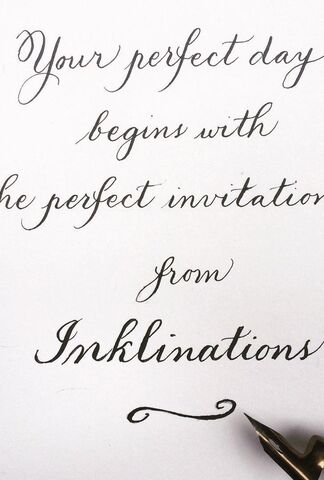 Your perfect day
begins with
he perfect invitation
from
Inklinations